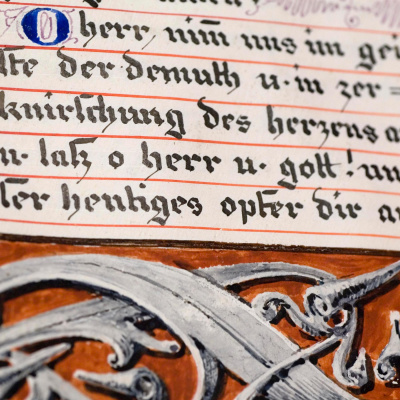 O herr, nim uns im gei
ste der demuth u. in zer=
knirschung des herzens a
u. laß o herr u. gott! un
ser heutiges opfer dir a